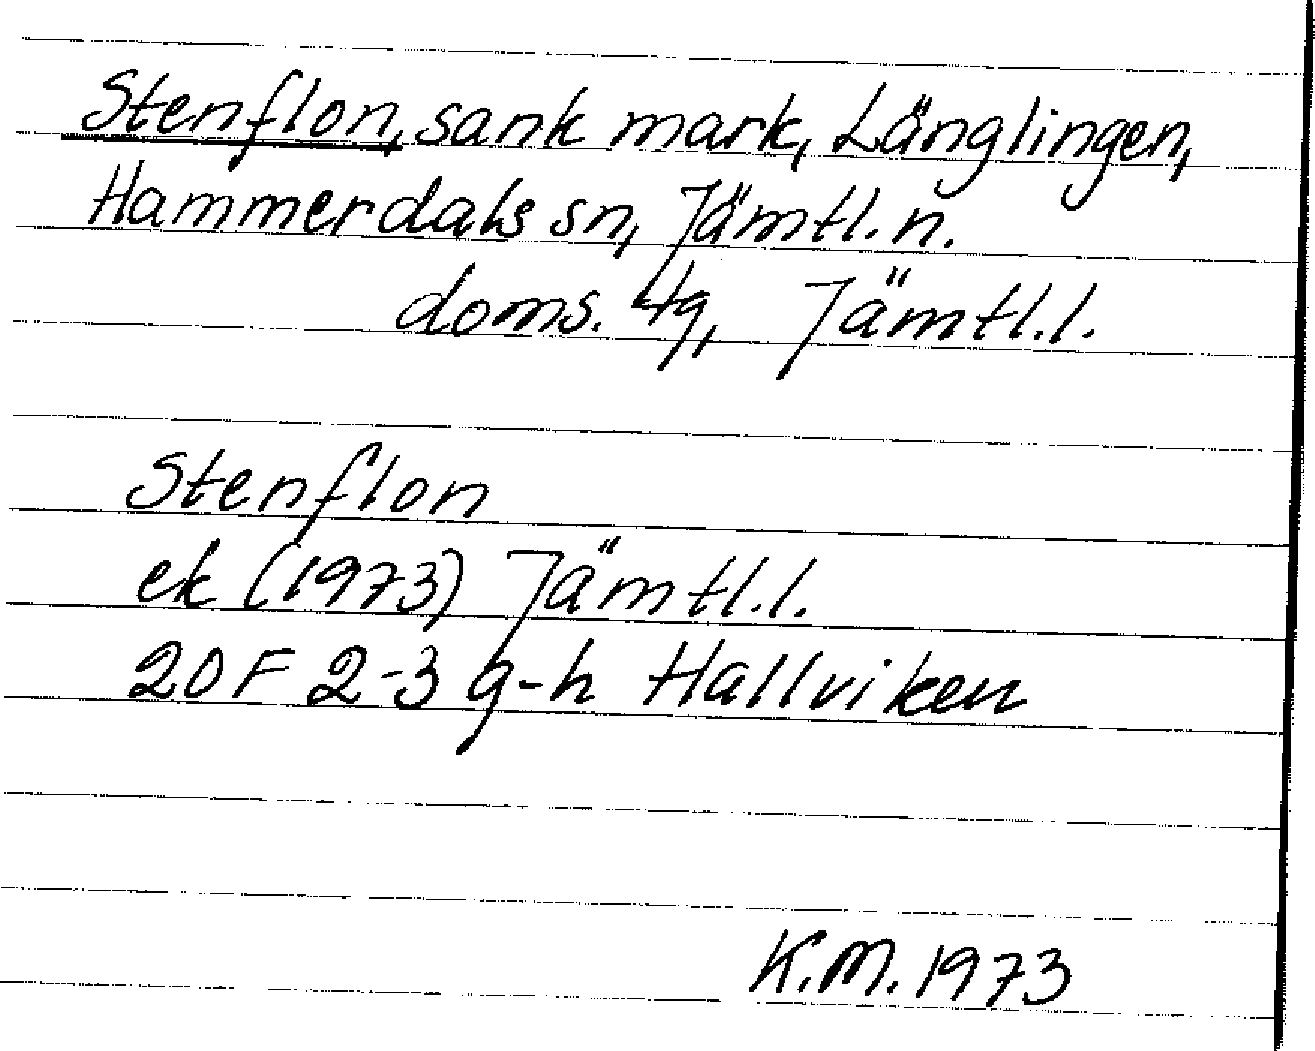 Stenflon, sank mark, Länglingen,
Hammerdals sn, Jämtl. n.
doms. tg, Jämtl. l.
Stenflon
ek (1973) Jämtl. l.
20F 2-3 g-h Hallviken
K.M. 1973